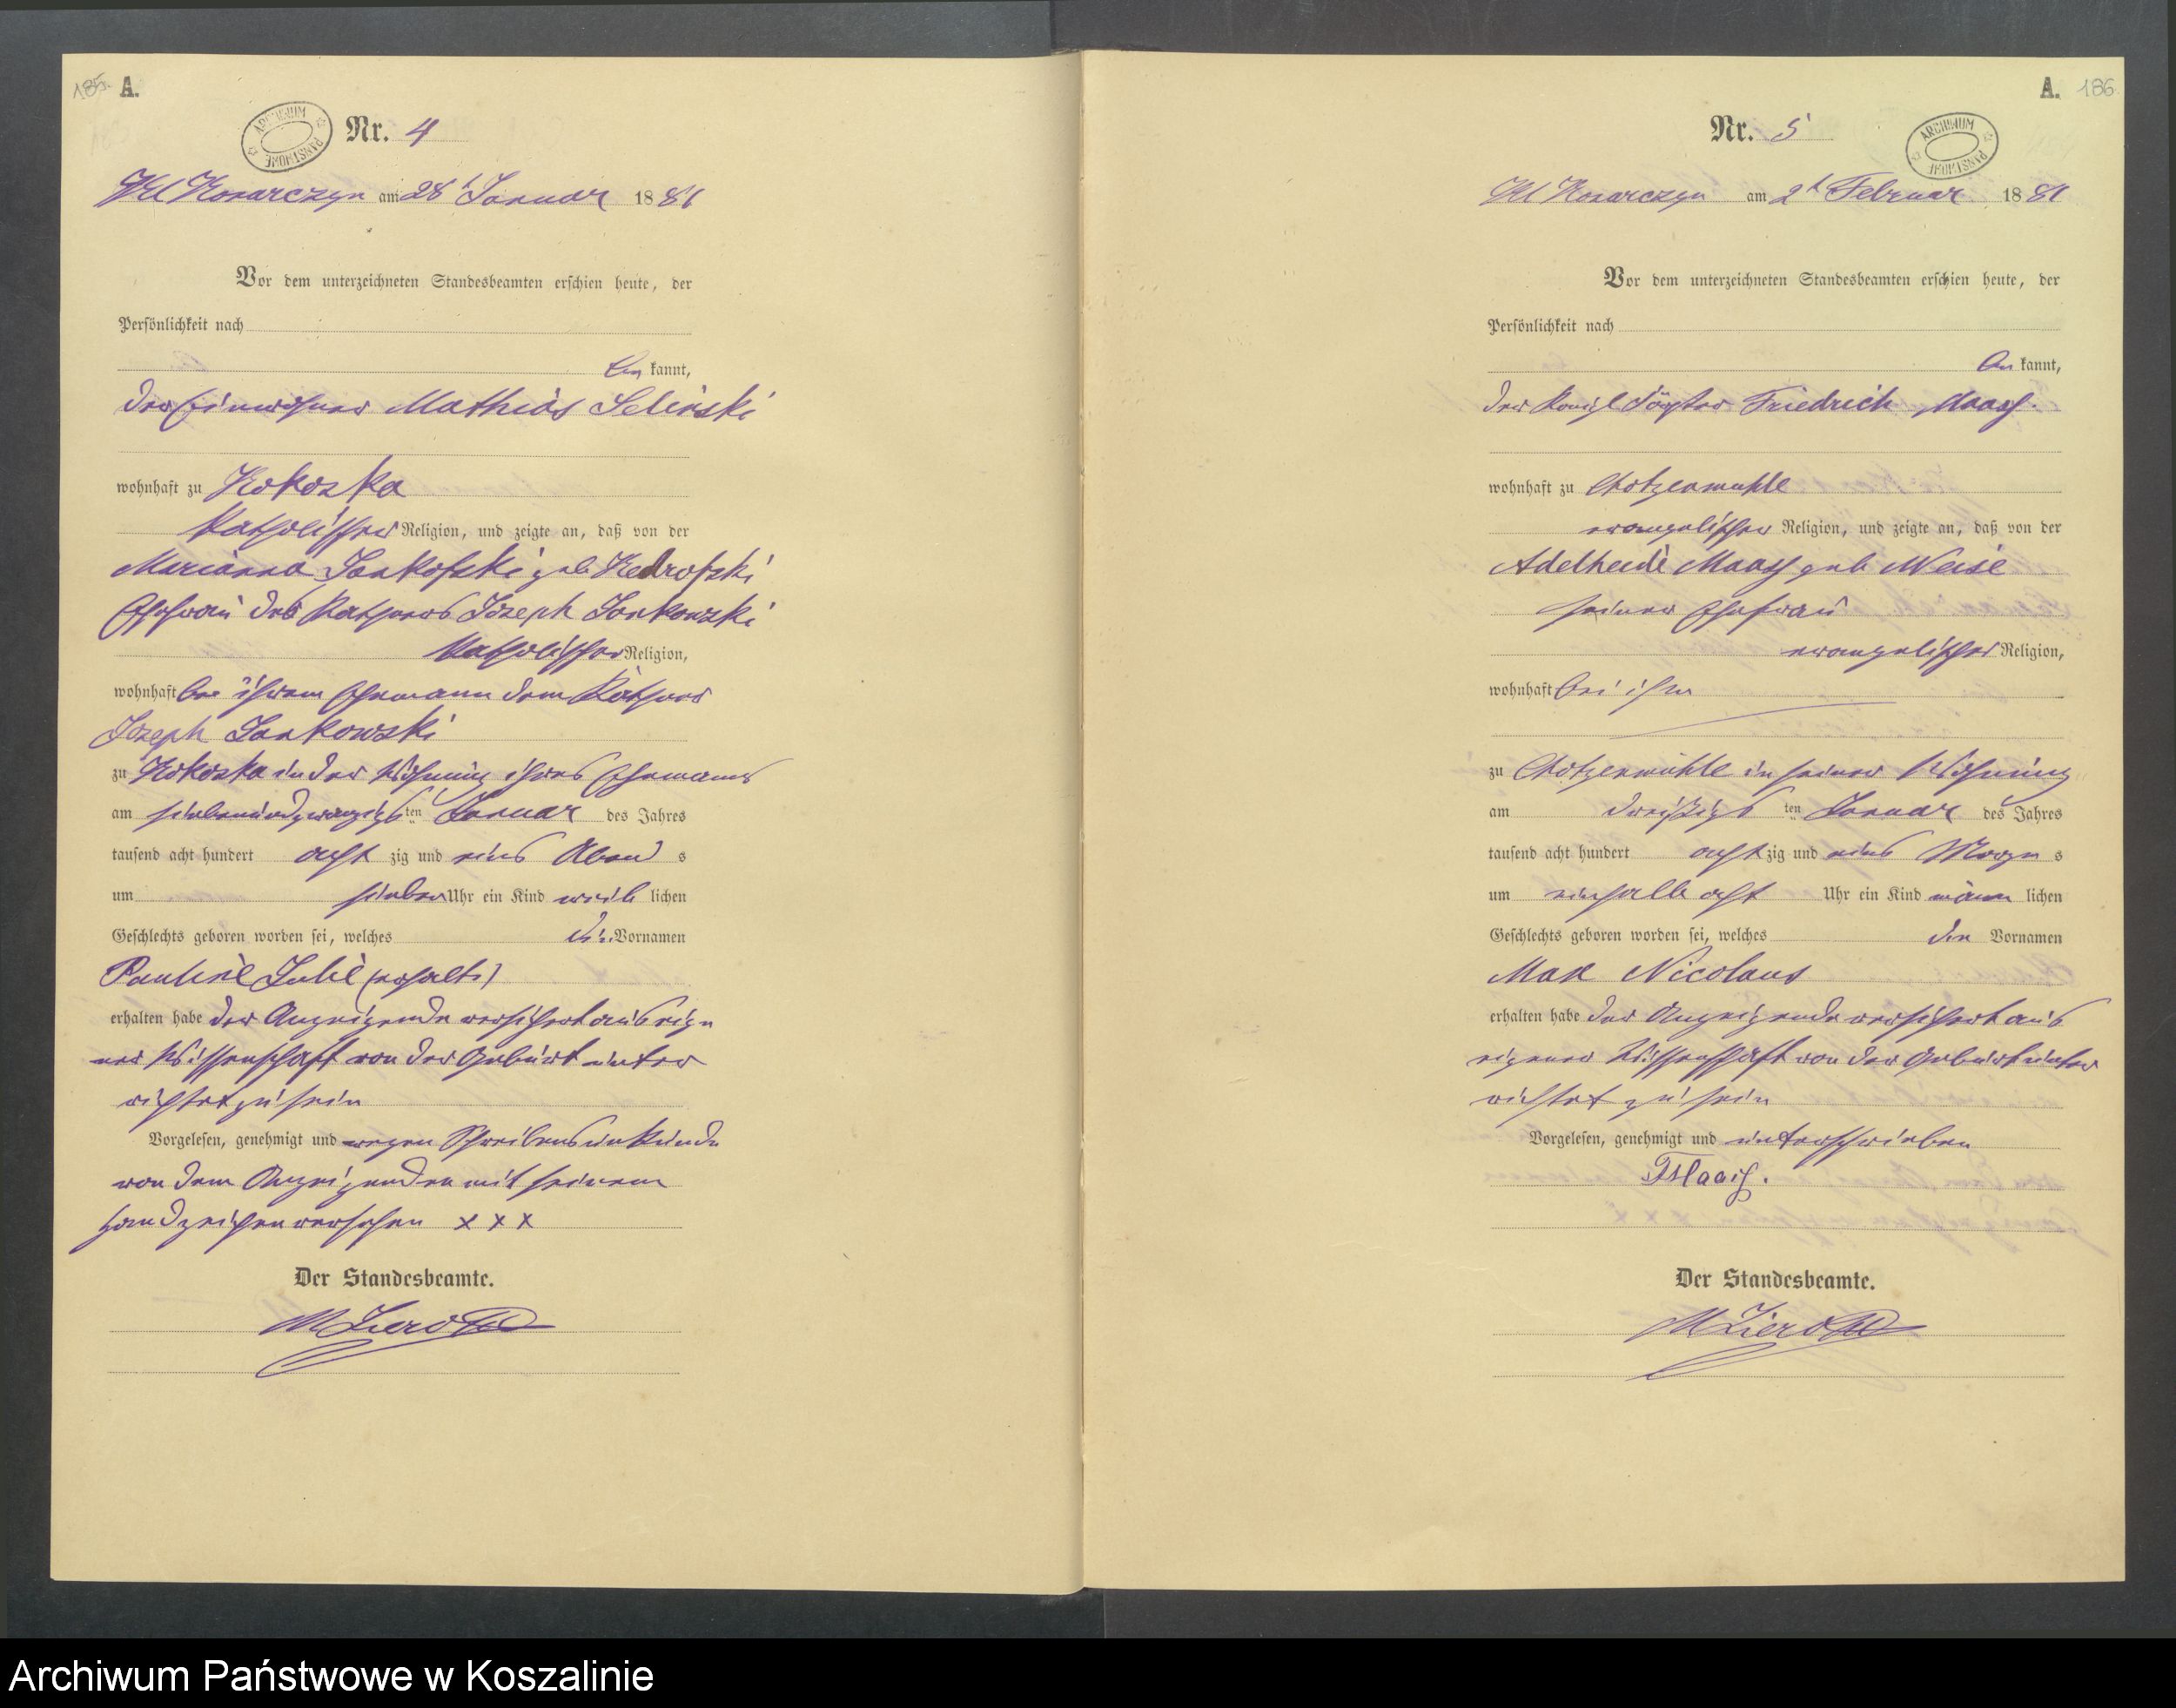 185. A.
ARCHIWUM PAŃSTWOWE
Nr. 4
Kl Konarczyn am 28t Januar 1881
Vor dem unterzeichneten Standesbeamten erschien heute, der
Persönlichkeit nach
be kannt,
der Einwohner Mathias Selinski
wohnhaft zu Kokoszka
katholischer Religion, und zeigte an, daß von der
Marianna Jankofski geb. Kedrofski
Ehefrau des Käthners Joseph Jankowski
katholischer Religion,
wohnhaft bei ihrem Ehemann dem Käthner
Joseph Jankowski
zu Kokoszka in der Wohnung ihres Ehemanns
am siebenundzwanzigsten Januar des Jahres
tausend acht hundert acht zig und eins Abend s
um sieben Uhr ein Kind weib lichen
Geschlechts geboren worden sei, welches die Vornamen
Pauline Julie
erhalten habe der Anzeigende versichert aus eige
ner Wissenschaft von der Geburt unter
richtet zu sein
Vorgelesen, genehmigt und wegen Schreibensunkunde
von dem Anzeigenden mit seinem
Handzeichen versehen x x x
Der Standesbeamte.
A. 186
Nr. 5
ARCHIWUM PAŃSTWOWE
Kl Konarczyn am 2t Februar 1881
Vor dem unterzeichneten Standesbeamten erschien heute, der
Persönlichkeit nach
be kannt,
der Königl Förster Friedrich Maass.
wohnhaft zu Chotzenmühle
evangelischer Religion, und zeigte an, daß von der
Adelheid Maass geb Weise
seiner Ehefrau
evangelischer Religion,
wohnhaft bei ihm
zu Chotzenmühle in seiner Wohnung
am dreißigsten Januar des Jahres
tausend acht hundert acht zig und eins Morgen s
um einhalb acht Uhr ein Kind männ lichen
Geschlechts geboren worden sei, welches den Vornamen
Max Nicolaus
erhalten habe der Anzeigende versichert aus
eigener Wissenschaft von der Geburt unter
richtet zu sein
Vorgelesen, genehmigt und unterschrieben
FMaass.
Der Standesbeamte.
Archiwum Państwowe w Koszalinie